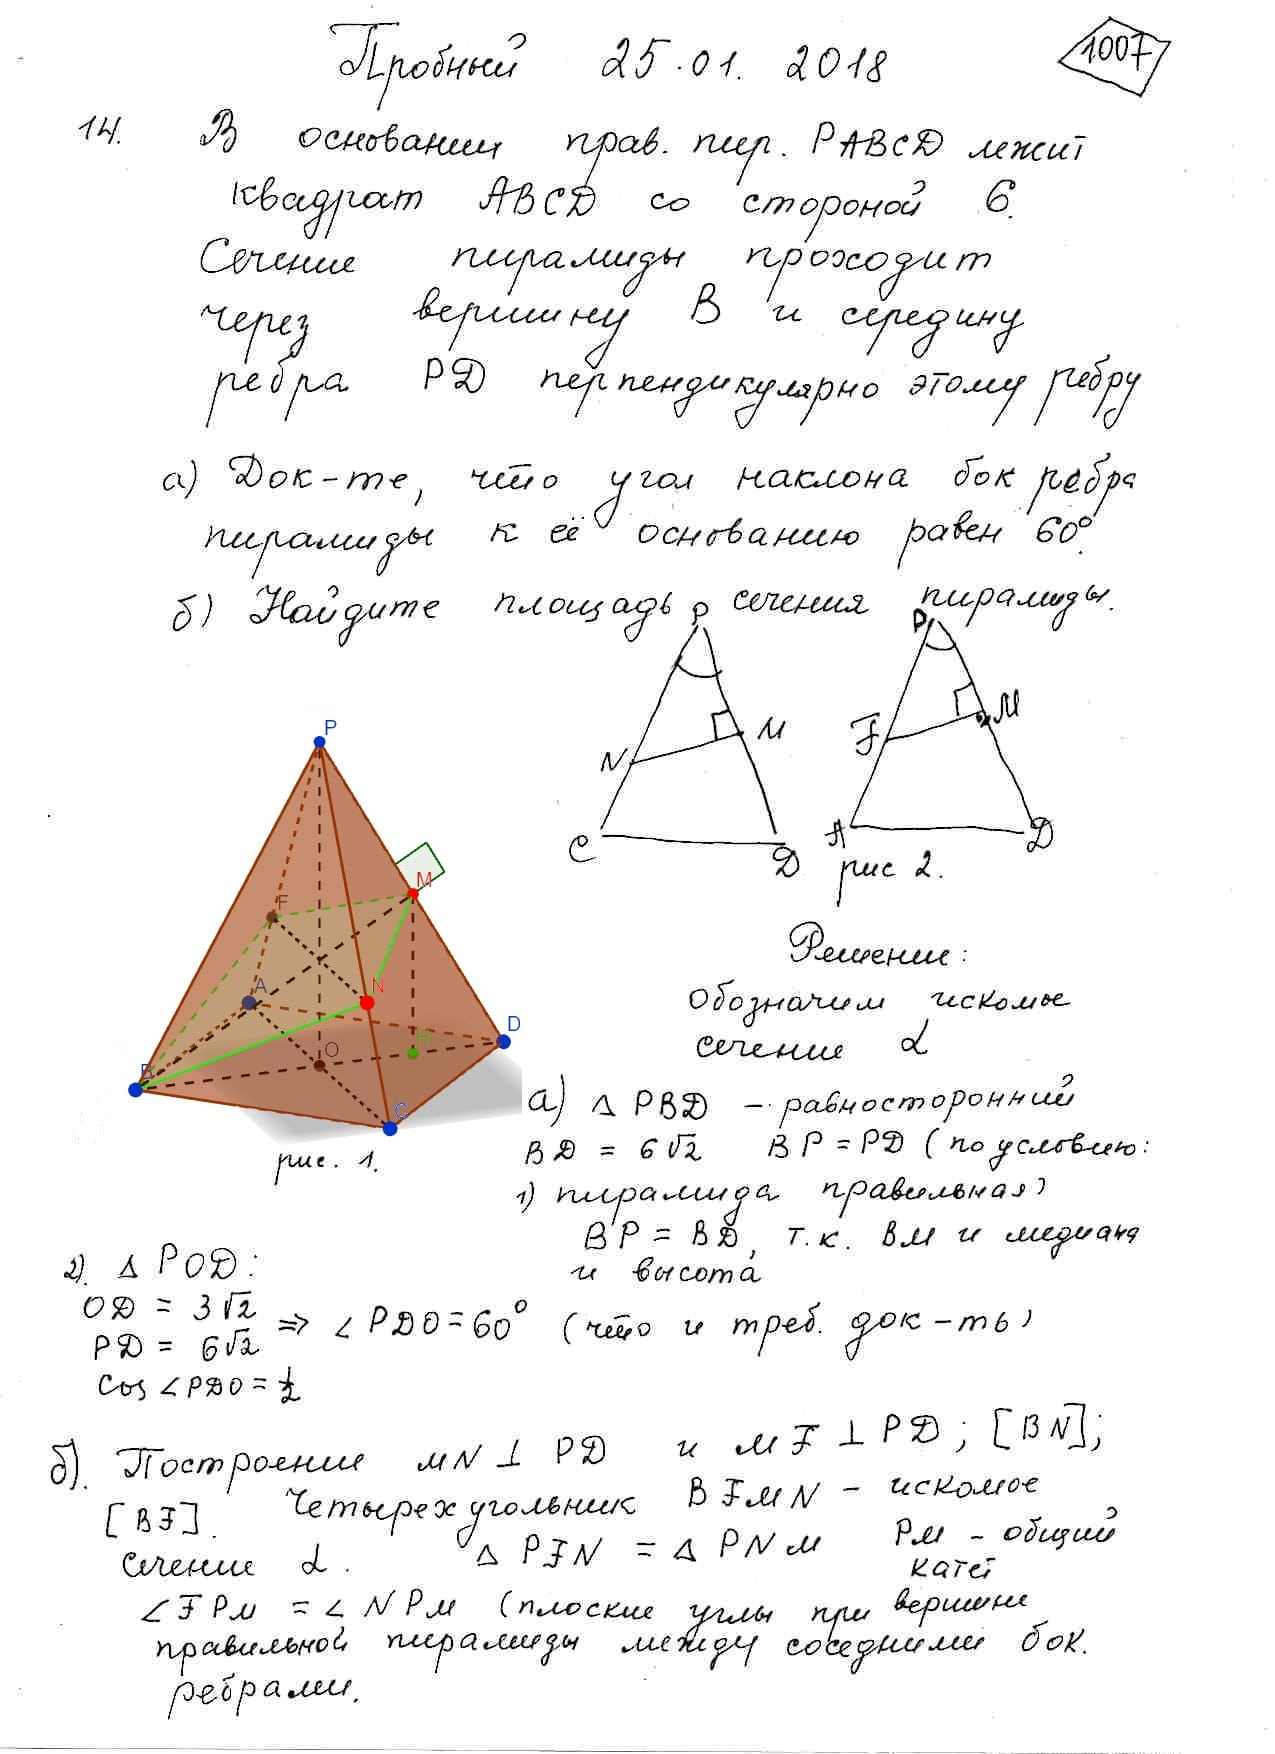 Пробный 25.01.2018
1007
14. В основании прав. пир. PABCD лежит
квадрат ABCD со стороной 6.
Сечение пирамиды проходит
через вершину B и середину
ребра PD перпендикулярно этому ребру
а) Док-те, что угол наклона бок ребра
пирамиды к её основанию равен 60°.
б) Найдите площадь сечения пирамиды.
P
N
M
C
D
P
F
M
A
D
рис 2.
P
M
F
A
N
D
B
O
H
C
рис. 1.
Решение:
Обозначим искомое
сечение α
а) Δ PBD – равносторонний
BD = 6√2 BP = PD (по условию:
1) пирамида правильная)
BP = BD, т.к. BM и медиана
и высота
2). Δ POD:
OD = 3√2
PD = 6√2
cos ∠PDO = 1/2
⇒ ∠PDO = 60° (что и треб. док-ть)
б). Построение MN ⊥ PD и MF ⊥ PD; [BN];
[BF]. Четырехугольник BFMN – искомое
сечение α. Δ PFN = Δ PNM PM – общий
катет
∠FPM = ∠NPM (плоские углы при вершине
правильной пирамиды между соседними бок.
ребрами.